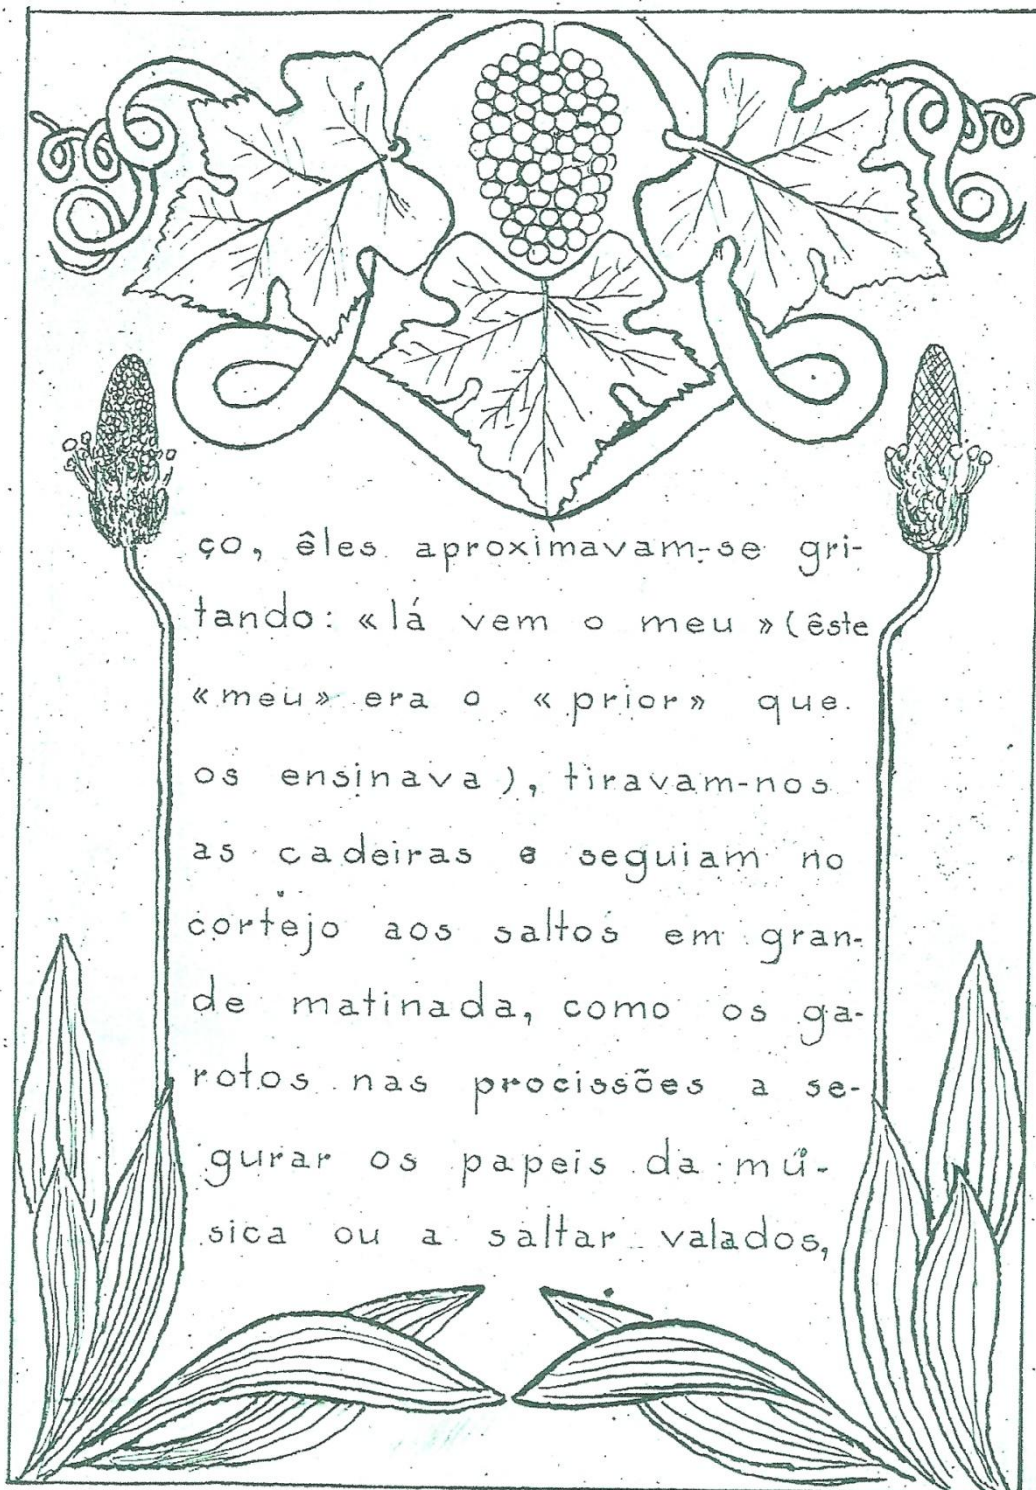 ço, êles aproximavam-se gri-
tando: «lá vem o meu» (êste
«meu» era o «prior» que
os ensinava), tiravam-nos
as cadeiras e seguiam no
cortejo aos saltos em gran-
de matinada, como os ga-
rotos nas procissões a se-
gurar os papeis da mú-
sica ou a saltar valados,